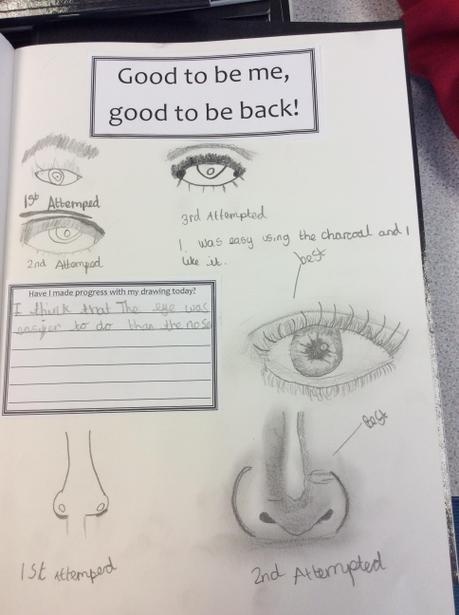 Good to be me,
good to be back!
1st Attemped
2nd Attemped
3rd Attempted
I was easy using the charcoal and I
like it.
best
Have I made progress with my drawing today?
I think that The eye was
easyer to do than the nose
Best
1st Attemped
2nd Attempted